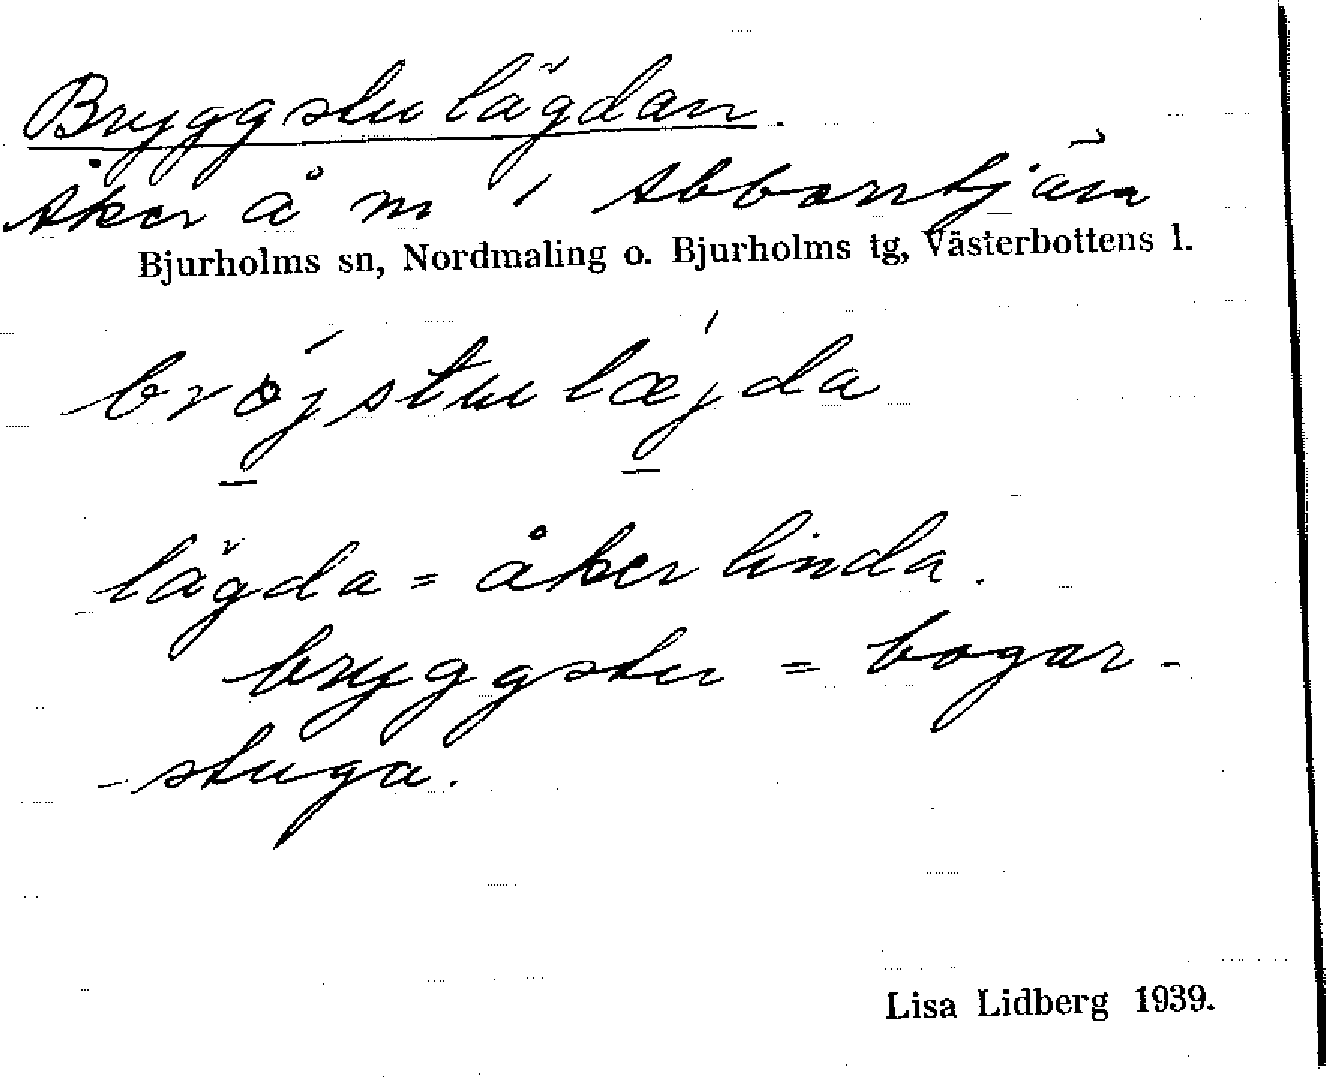 Bryggstulägdan.
Åker å n i Abborrtjärn
Bjurholms sn, Nordmaling o. Bjurholms tg, Västerbottens l.
brøjstulæjda
lägda = åkerlinda.
bryggstu = bagar-
stuga.
Lisa Lidberg 1939.